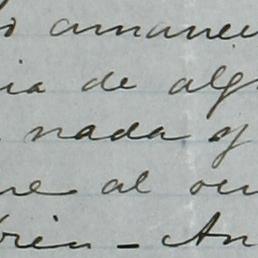 amanec
ia de alg
nada y
ne al
bien - An